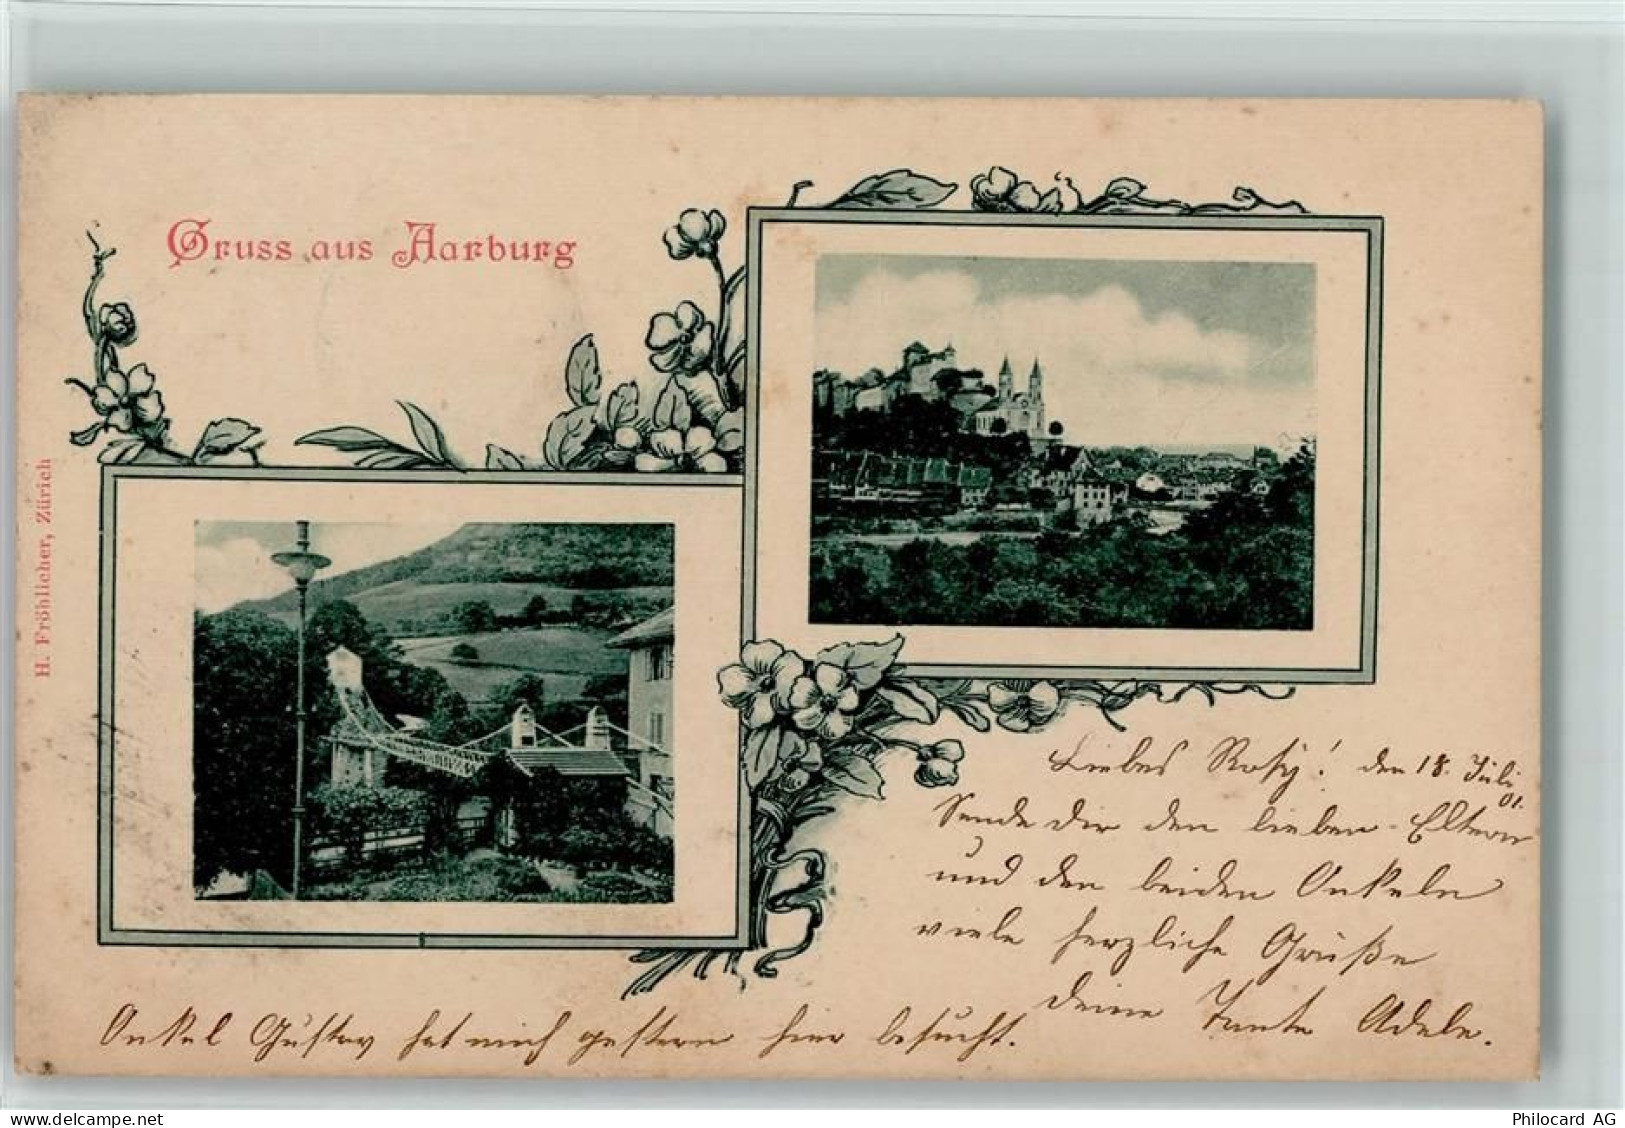 Gruss aus Aarburg
H. Fröhlicher, Zürich
Liebes Rosy! den 18. Juli
01.
Sende dir den lieben Eltern
und den beiden Onkeln
viele herzliche Grüße
deine Tante Adele.
Onkel Gustav hat mich gestern hier besucht.
delcampe.net
Philocard AG